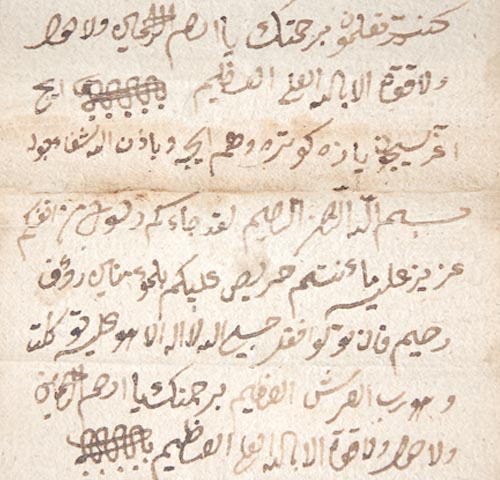 كنتم تعلمون برحمتك يا ارحم الراحمين ولا حول
ولا قوة الا بالله العلي العظيم
يازه كوتره وهم ايچه وباذن الله شفا بوله
بسم الله الرحمن الرحيم لقد جاءكم رسول من انفسكم
عزيز عليه ما عنتم حريص عليكم بالمؤمنين رؤف
رحيم فان تولوا فقل حسبي الله لا اله الا هو عليه توكلت
وهو رب العرش العظيم برحمتك يا ارحم الراحمين
ولا حول ولا قوة الا بالله العلي العظيم